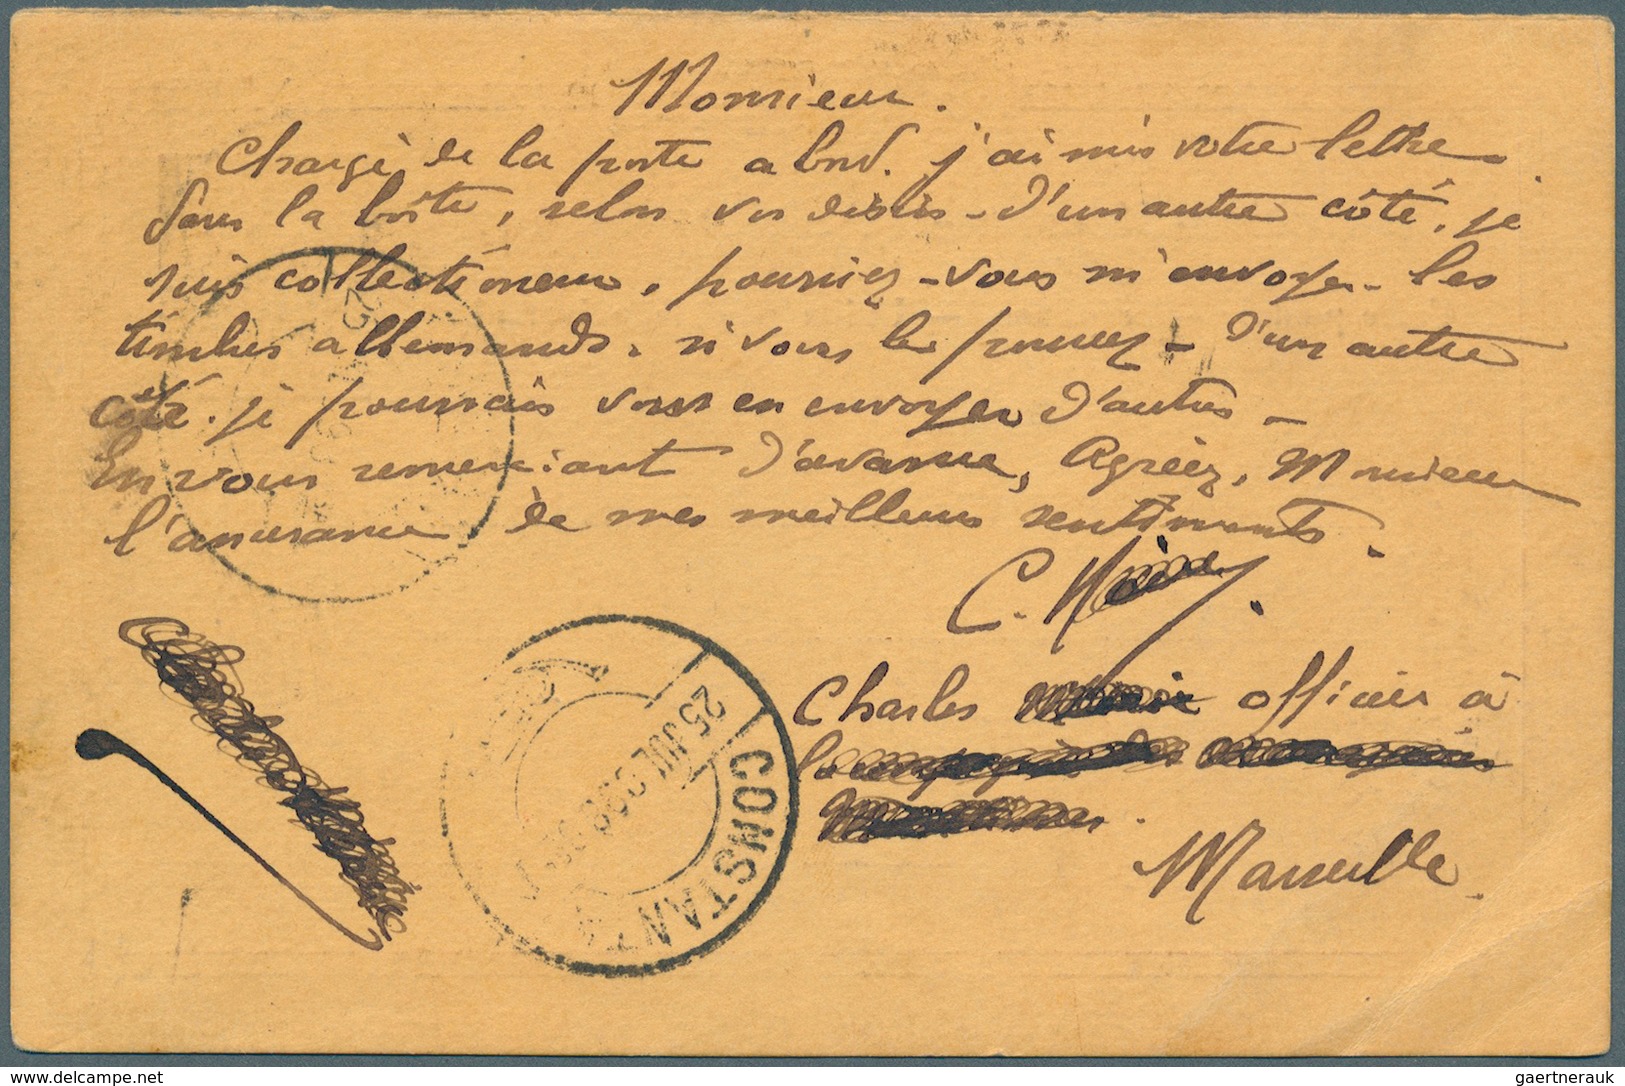 Monsieur.
Chargé de la poste a bord. j'ai mis votre lettre
dans la boîte, selon vos désirs - D'un autre côté, je
suis collectioneur, pourriez-vous m'envoyer les
timbres allemands, si vous le pouvez - D'un autre
côté. je pourrais vous en envoyer d'autres -
En vous remerciant d'avance, Agréez, Monsieur
l'assurance de mes meilleurs sentiments.
C.
Charles officier à
Marseille.
CONSTANTZA
25 JUL 938
www.delcampe.net
gaertnerauk